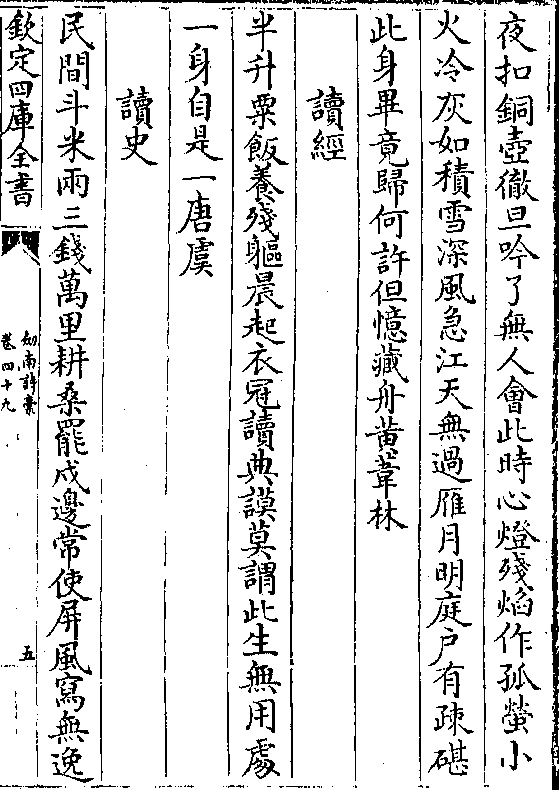 夜扣銅壺徹旦吟了無人會此時心燈殘焰作孤螢小
火冷灰如積雪深風急江天無過雁月明庭戶有疎碪
此身畢竟歸何許但憶藏舟黄葦林
讀經
半升粟飯養殘軀晨起衣冠讀典謨莫謂此生無用處
一身自是一唐虞
讀史
民間斗米兩三錢萬里耕桑罷戍邊常使屏風寫無逸
欽定四庫全書
劍南詩稾
卷四十九
五